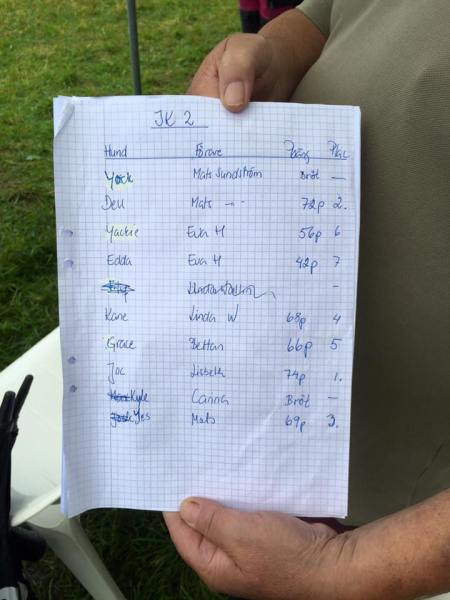 IK 2
Hund Förare Poäng Plac
Yock Mats Sundström Bröt —
Dell Mats -"- 72p 2.
Yackie Eva H 56p 6
Edda Eva H 42p 7
-
Kane Linda W 68p 4
Grace Bettan 66p 5
Joc Lisbeth 74p 1.
Kyle Carina Bröt —
Yes Mats 69p 3.